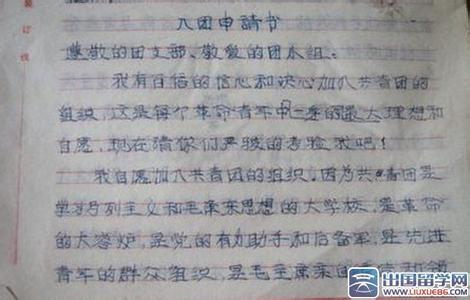 装订线
入团申請书
尊敬的团支部、敬爱的团小組:
我有百倍的信心和决心加入共青团的
组织,这是每个革命青年中的最大理想和
自愿,现在請你们严骏的考验我吧!
我自愿加入共青团的组织,因为共青团是
学习马列主义和毛泽东思想的大学校,是革命
的大容炉,是党的有力助手和后备军,是先进
青年的群众组织,是毛主席亲
出国留学网
www.liuxue86.com